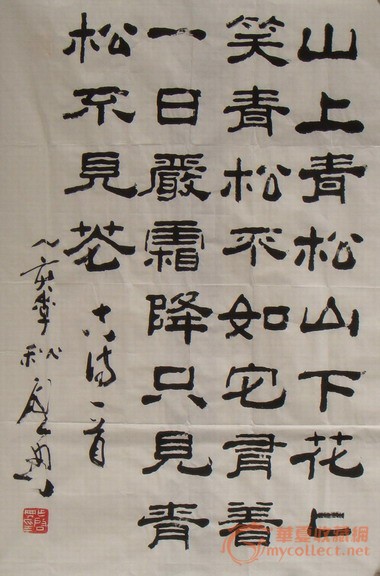 山上青松山下花〻
笑青松不如它
一日嚴霜降只見青
松不見花
古詩一首
季秋
華夏收藏網
mycollect.net